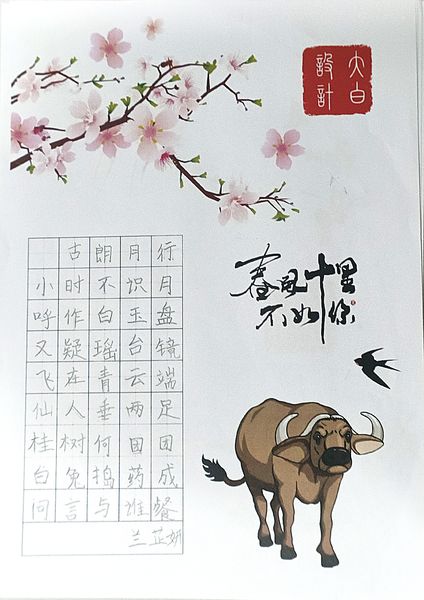 大白
設計
春風十里
不如你
古朗月行
小时不识月
呼作白玉盘
又疑瑶台镜
飞在青云端
仙人垂两足
桂树何团团
白兔捣药成
问言与谁餐
兰芷妍